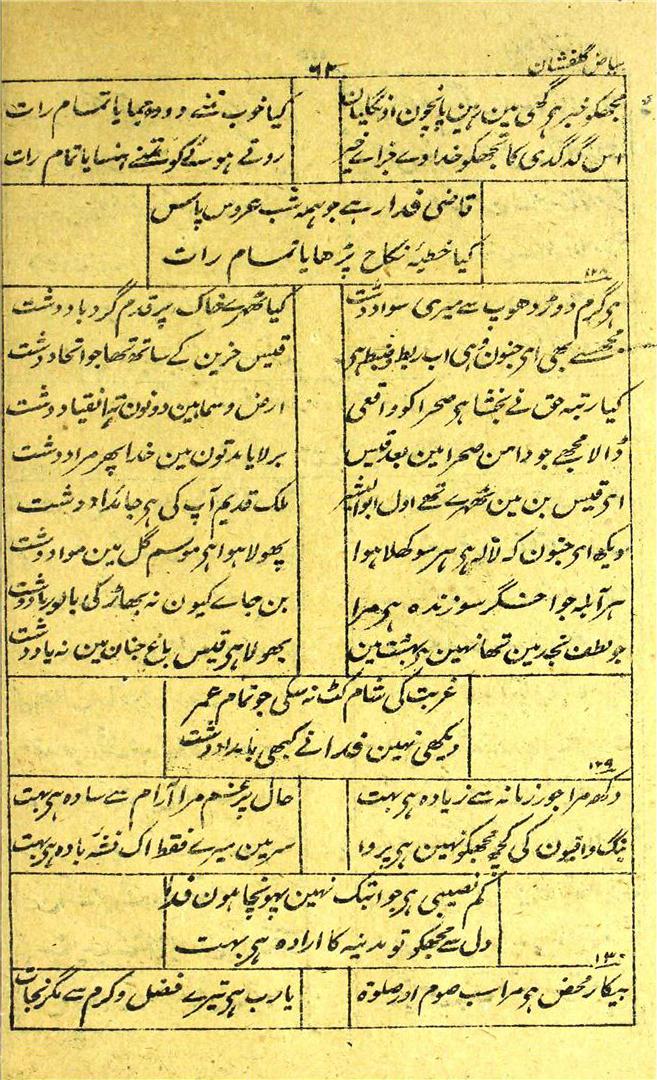 بیاض گلفشان
۶۲
مجھکو خبر ہر گھی مین ہین پانچون اونگلیان
کیا خوب تمنے دودہ چھایا تمام رات
اس گدگدی کا تجھکو خدا دے جزاے خیر
روتے ہوے کو تمنے ہنسایا تمام رات
قاضی فدا رہے جو ہمہ شب عروس پاس
کیا خطبۂ نکاح پڑھایا تمام رات
۱۲۸
ہر گرم دوڑ دھوپ سے میری سواد دشت
کیا ٹھہرے خاک پر قدم گردباد دشت
مجھسے بھی ای جنون وہی اب ربط و ضبط ہر
قیس حزین کے ساتھ تھا جو اتحاد دشت
کیا رتبہ حق نے بخشا ہر صحرا کو واقعی
ارض و سما ہین دونون تہ انقیاد دشت
ڈالا مجھے جو دامن صحرا مین بعد قیس
بر لایا مدتون مین خدا پھر مراد دشت
ای قیس بن مین ٹھہرے تھے اول ابوالبشر
ملک قدیم آپ کی ہر جائداد دشت
دیکھ ای جنون کہ لالہ ہر ہر سو کھلا ہوا
پھولا ہوا ہر موسم گل مین مواد دشت
ہر آبلہ جو اخگر سوزندہ ہر مرا
بن جاے کیون نہ بھاڑ کی بالو رماد دشت
جو لطف نجد مین تھا نہین ہر بہشت مین
بھولا ہر قیس باغ جنان مین نہ یاد دشت
غربت کی شام کٹ نہ سکی جو تمام عمر
دیکھی نہین فدا نے کبھی بامداد دشت
۱۲۹
دکھ مرا جور زمانہ سے زیادہ ہر بہت
حال پر غم مرا آرام سے سادہ ہر بہت
بنگ و افیون کی کچھ مجھکو نہین ہر پروا
سر مین میرے فقط اک نشۂ بادہ ہر بہت
کم نصیبی ہر جو ابتک نہین پہونچا ہون فدا
دل سے مجھکو تو مدینہ کا ارادہ ہر بہت
۱۳۰
بیکار محض ہر مرا سب صوم اور صلوۃ
یارب ہر تیرے فضل و کرم سے مگر نجات